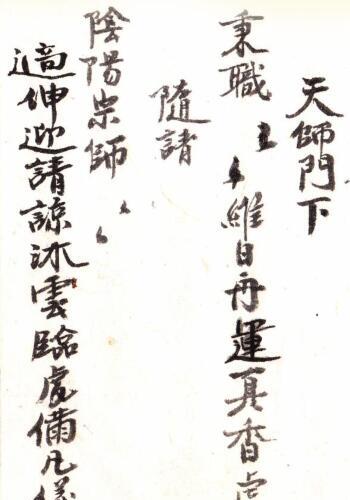 天師門下
秉職 維日再運真香虔
隨請
陰陽宗師
適伸迎請諒沐雲臨處備凡儀